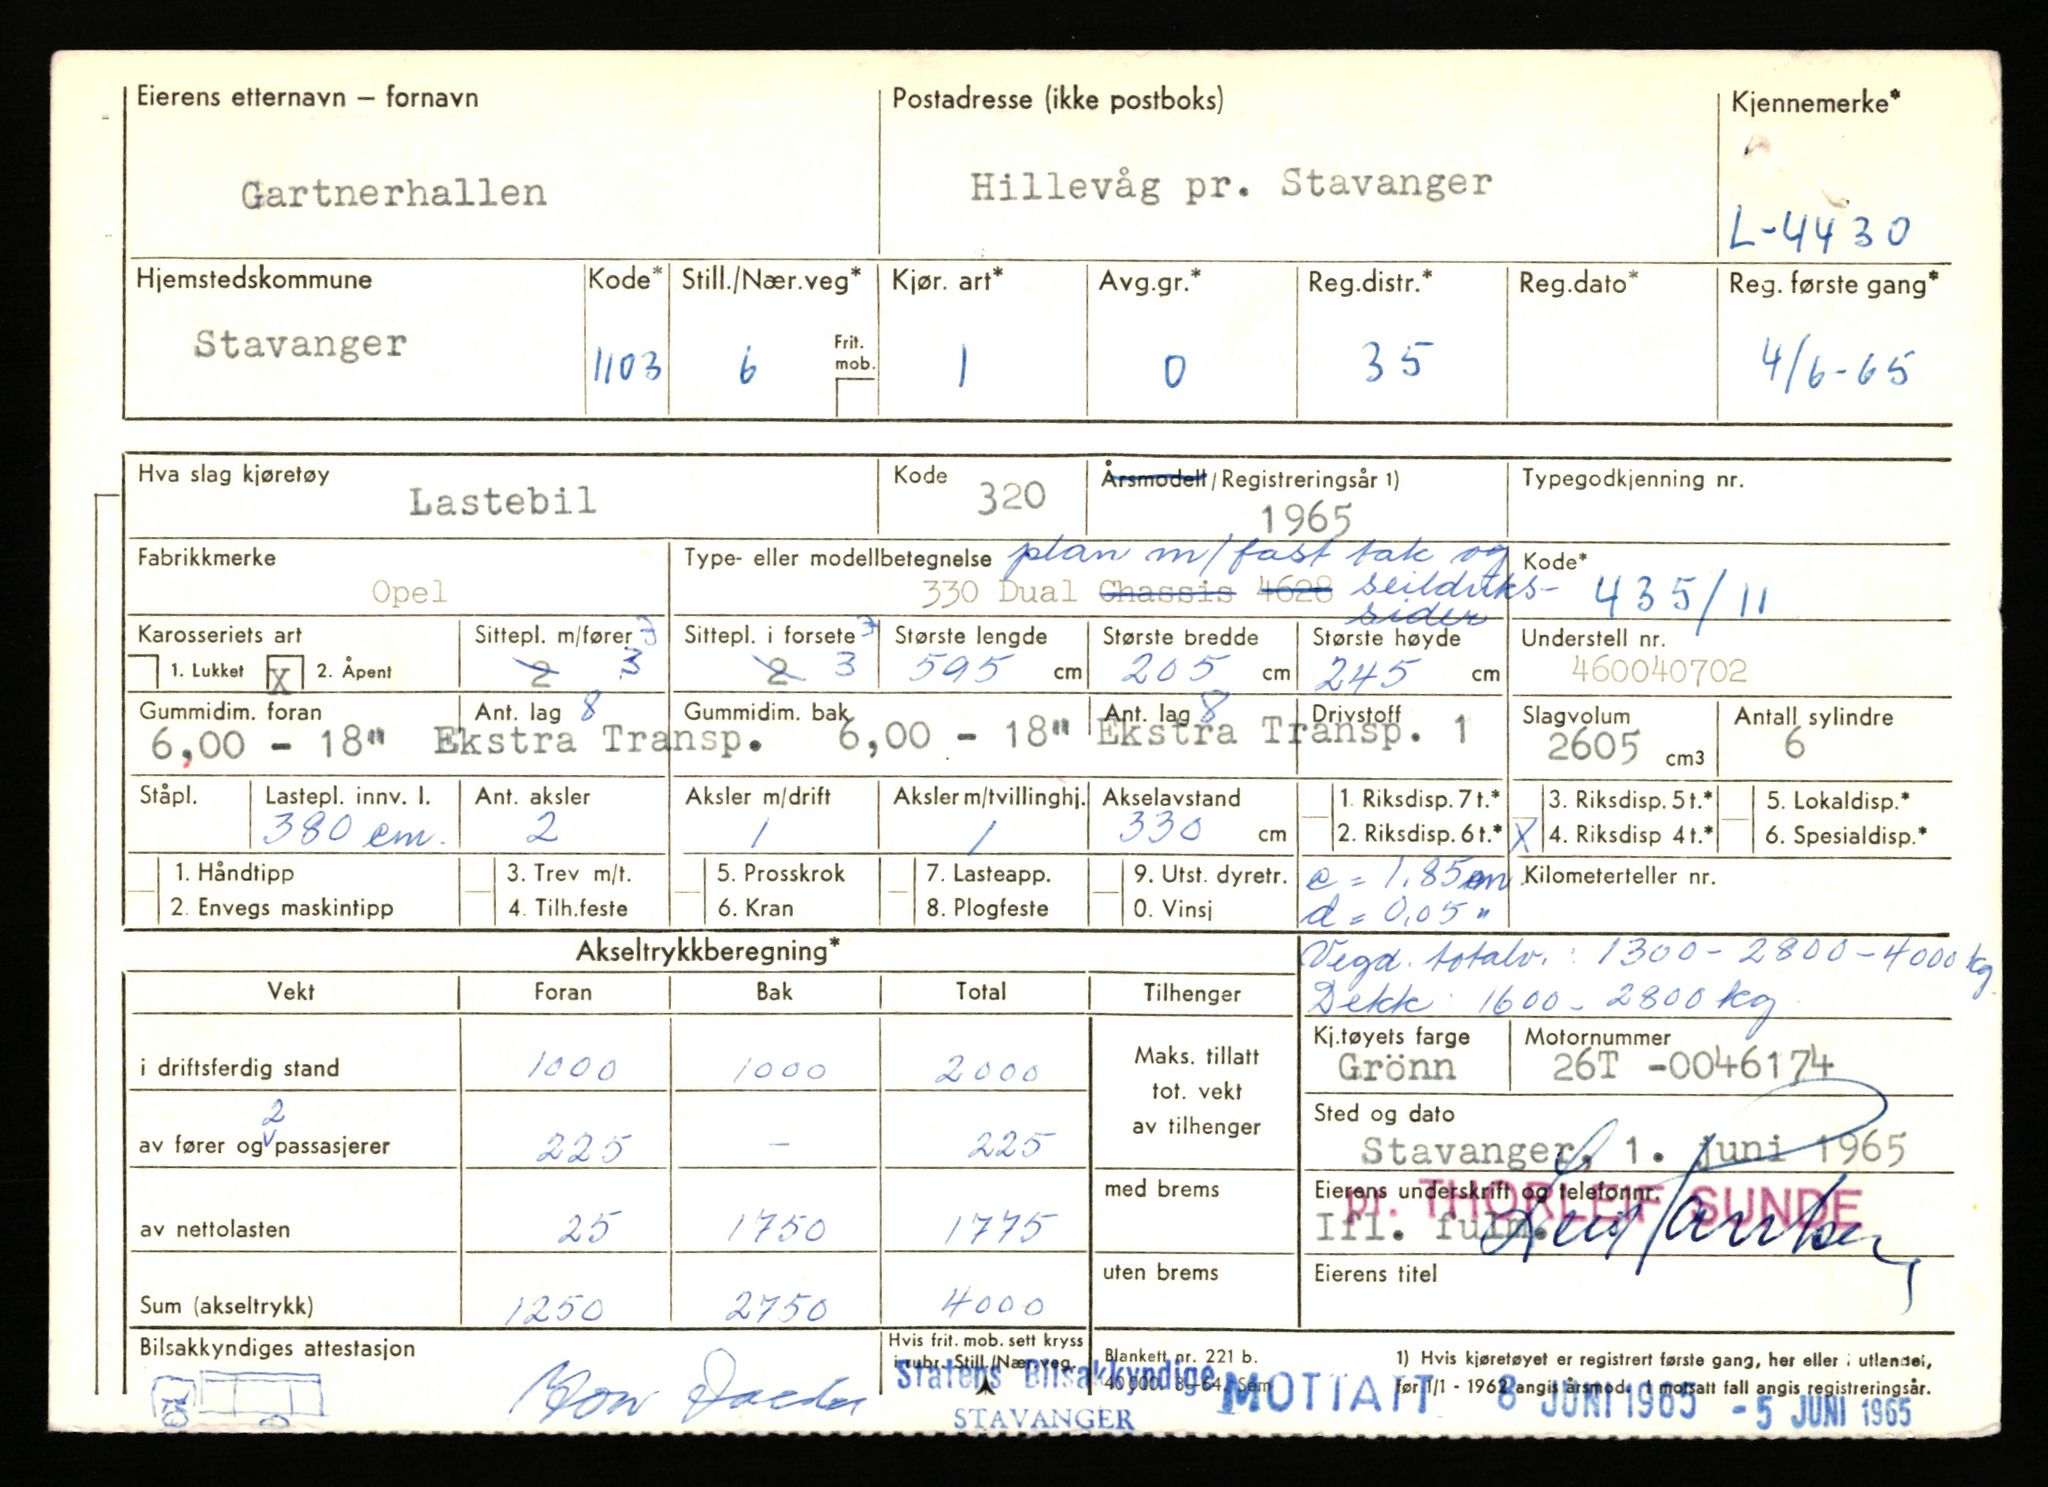 Eierens etternavn – fornavn Postadresse (ikke postboks) Kjennemerke*
Gartnerhallen Hillevåg pr. Stavanger L-4430
Hjemstedskommune Kode* Still./Nær.veg* Kjør. art* Avg.gr.* Reg.distr.* Reg.dato* Reg. første gang*
Stavanger 1103 6 Frit. mob. 1 0 35 4/6-65
Hva slag kjøretøy Kode Årsmodell/Registreringsår 1) Typegodkjenning nr.
Lastebil 320 1965
Fabrikkmerke Type- eller modellbetegnelse plan m/fast tak og Kode*
Opel 330 Dual Chassis 4628 seilduks- 435/11
sider
Karosseriets art Sittepl. m/fører 3 Sittepl. i forsete 3 Største lengde Største bredde Største høyde Understell nr.
1. Lukket X 2. Åpent 2 3 2 3 595 cm 205 cm 245 cm 460040702
Gummidim. foran Ant. lag 8 Gummidim. bak Ant. lag 8 Drivstoff Slagvolum Antall sylindre
6,00 – 18" Ekstra Transp. 6,00 – 18" Ekstra Transp. 1 2605 cm3 6
Ståpl. Lastepl. innv. l. Ant. aksler Aksler m/drift Aksler m/tvillinghj. Akselavstand 1. Riksdisp. 7 t.* 3. Riksdisp. 5 t.* 5. Lokaldisp.*
380 cm. 2 1 1 330 cm 2. Riksdisp. 6 t.* X 4. Riksdisp 4 t.* 6. Spesialdisp.*
1. Håndtipp 3. Trev m/t. 5. Prosskrok 7. Lasteapp. 9. Utst. dyretr. c = 1.85 m Kilometerteller nr.
2. Envegs maskintipp 4. Tilh.feste 6. Kran 8. Plogfeste 0. Vinsj d = 0,05 "
Akseltrykkberegning* Vegd. totalv. : 1300 – 2800 – 4000 kg
Vekt Foran Bak Total Tilhenger Dekk : 1600 – 2800 kg.
Kj.tøyets farge Motornummer
i driftsferdig stand 1000 1000 2000 Maks. tillatt tot. vekt av tilhenger Grönn 26T -0046174
Sted og dato
2
av fører og v passasjerer 225 – 225 Stavanger, 1. juni 1965
med brems Eierens underskrift og telefonnr.
pr. THORLEIF SUNDE
av nettolasten 25 1750 1775 Ifl. fulm.
uten brems Eierens titel
Sum (akseltrykk) 1250 2750 4000
Bilsakkyndiges attestasjon Hvis frit. mob. sett kryss i rubr. Still./Nær.veg. Blankett nr. 221 b. 1) Hvis kjøretøyet er registrert første gang, her eller i utlandet,
40 000. 3–64. Sem før 1/1 - 1962 angis årsmod. I motsatt fall angis registreringsår.
Statens Bilsakkyndige MOTTATT 8 JUNI 1965 - 5 JUNI 1965
STAVANGER